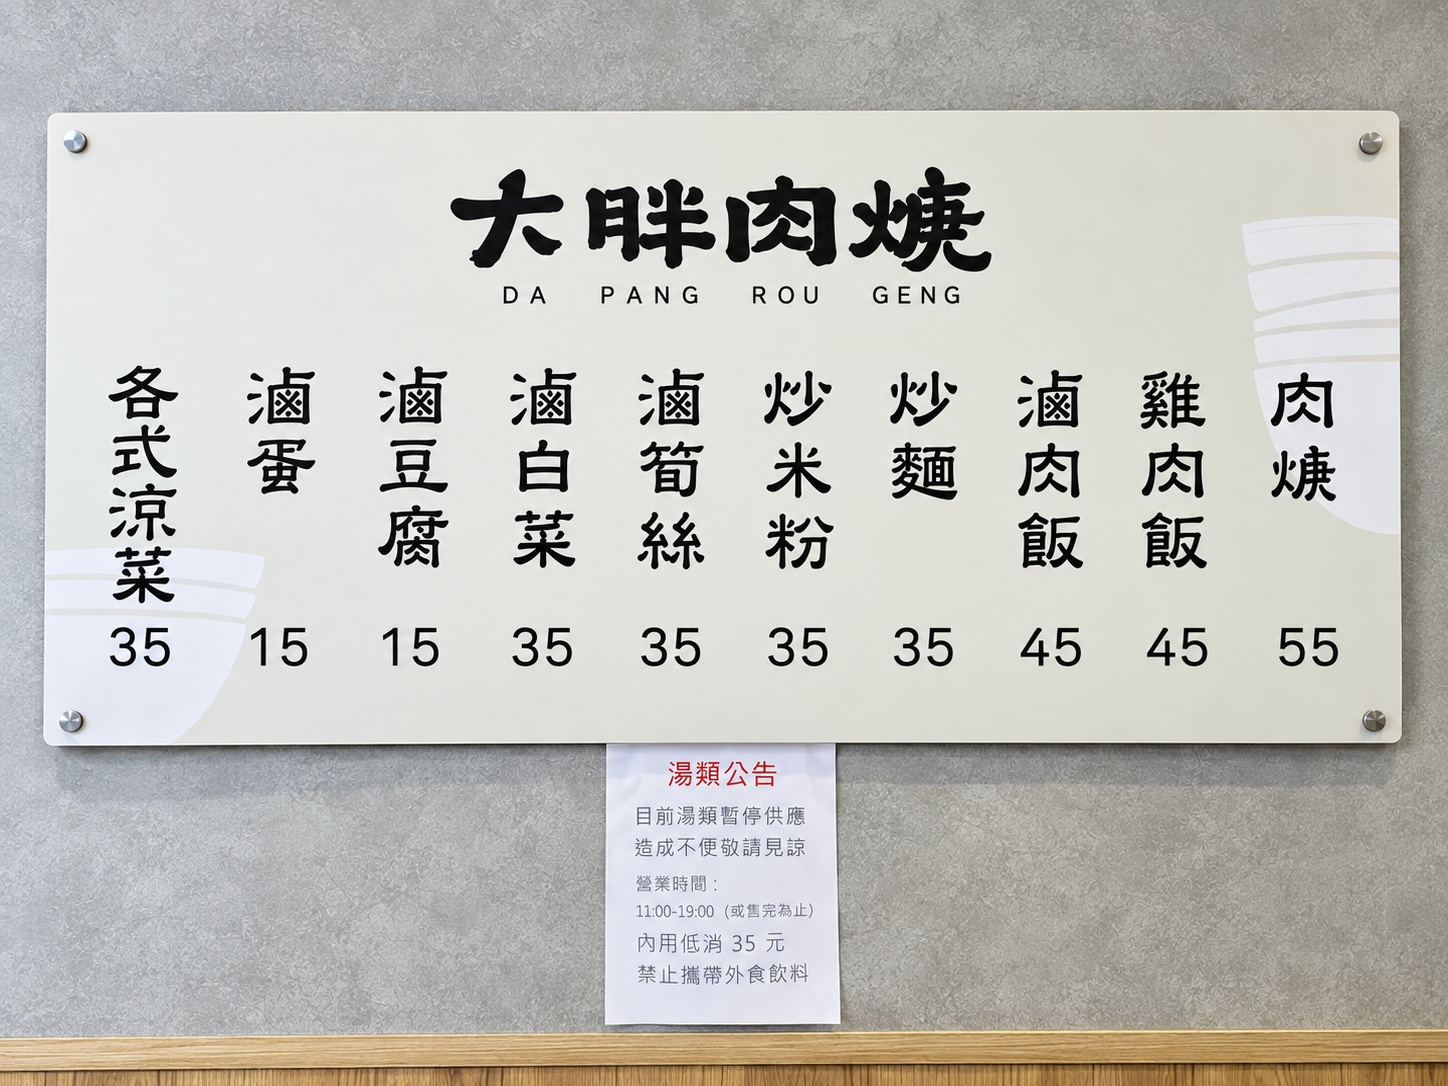 大胖肉焿
DA PANG ROU GENG
肉焿
55
雞肉飯
45
滷肉飯
45
炒麵
35
炒米粉
35
滷筍絲
35
滷白菜
35
滷豆腐
15
滷蛋
15
各式涼菜
35
湯類公告
目前湯類暫停供應
造成不便敬請見諒
營業時間：
11:00-19:00（或售完為止）
內用低消 35 元
禁止攜帶外食飲料